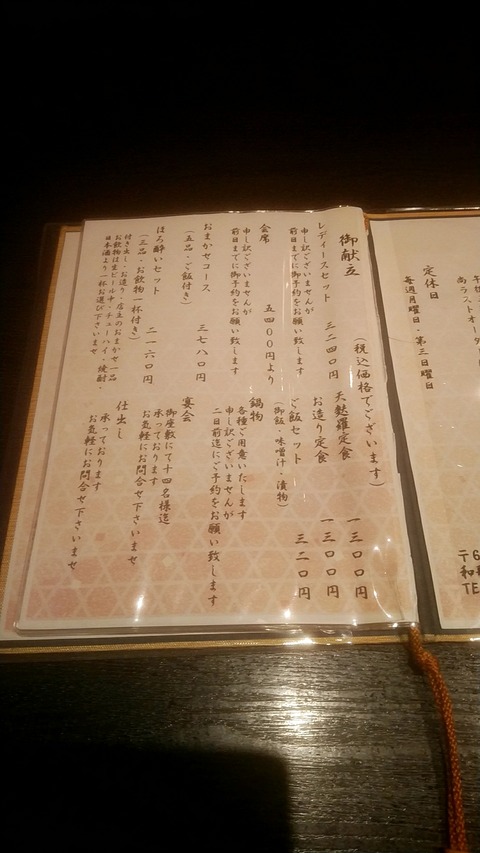 御献立
（税込価格でございます）
レディースセット　三二四〇円
申し訳ございませんが
前日までに御予約をお願い致します
会席　五四〇〇円より
申し訳ございませんが
前日までに御予約をお願い致します
おまかせコース　三七八〇円
（五品・ご飯付き）
ほろ酔いセット　二一六〇円
（三品・お飲物一杯付き）
付き出し・お造り・店主のおまかせ一品
お飲物は生ビール中・チューハイ・焼酎・
日本酒より一杯お選び下さいませ
天麩羅定食　一三〇〇円
お造り定食　一三〇〇円
ご飯セット　三二〇円
（御飯・味噌汁・漬物）
鍋物
各種ご用意いたします
申し訳ございませんが
二日前迄にご予約をお願い致します
宴会
御座敷にて十四名様迄
承っております
お気軽にお問合せ下さいませ
仕出し
承っております
お気軽にお問合せ下さいませ
定休日
毎週月曜日・第三日曜日
〒6
TE